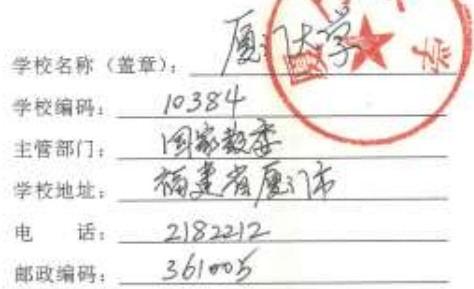 学校名称（盖章）：厦门大学
学校编码：10384
主管部门：国家教委
学校地址：福建省厦门市
电 话：2182212
邮政编码：361005